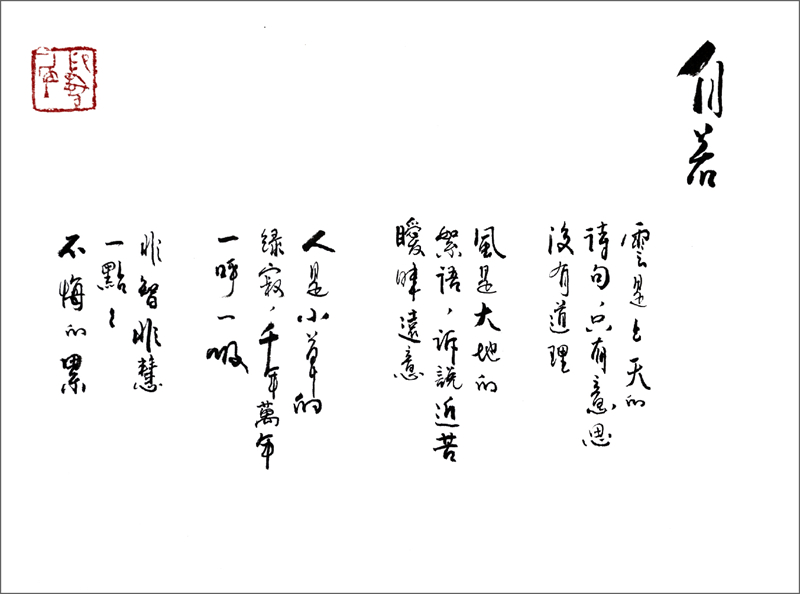 自若
雲是上天的
詩句，只有意思
沒有道理
風是大地的
絮語，訴說近苦
遠意
人是小草的
綠寂，千年萬年
一呼一吸
非智非慧
一點〻
不悔的累